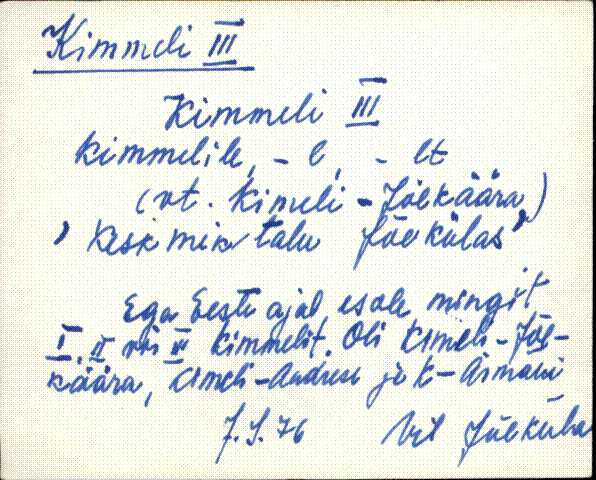 Kimmeli III
Kimmeli III
kimmelile, -l, -lt
(vt. Kimeli - Jõekäära)
' keskmine talu Jõekülas'
Ega Eesti ajal esole mingit
I, II või III kimmelit. Oli Kimeli-Jõe-
käära, Kimeli-Andrese ja K-Aimani
J. S. 76 Vil Jõeküla